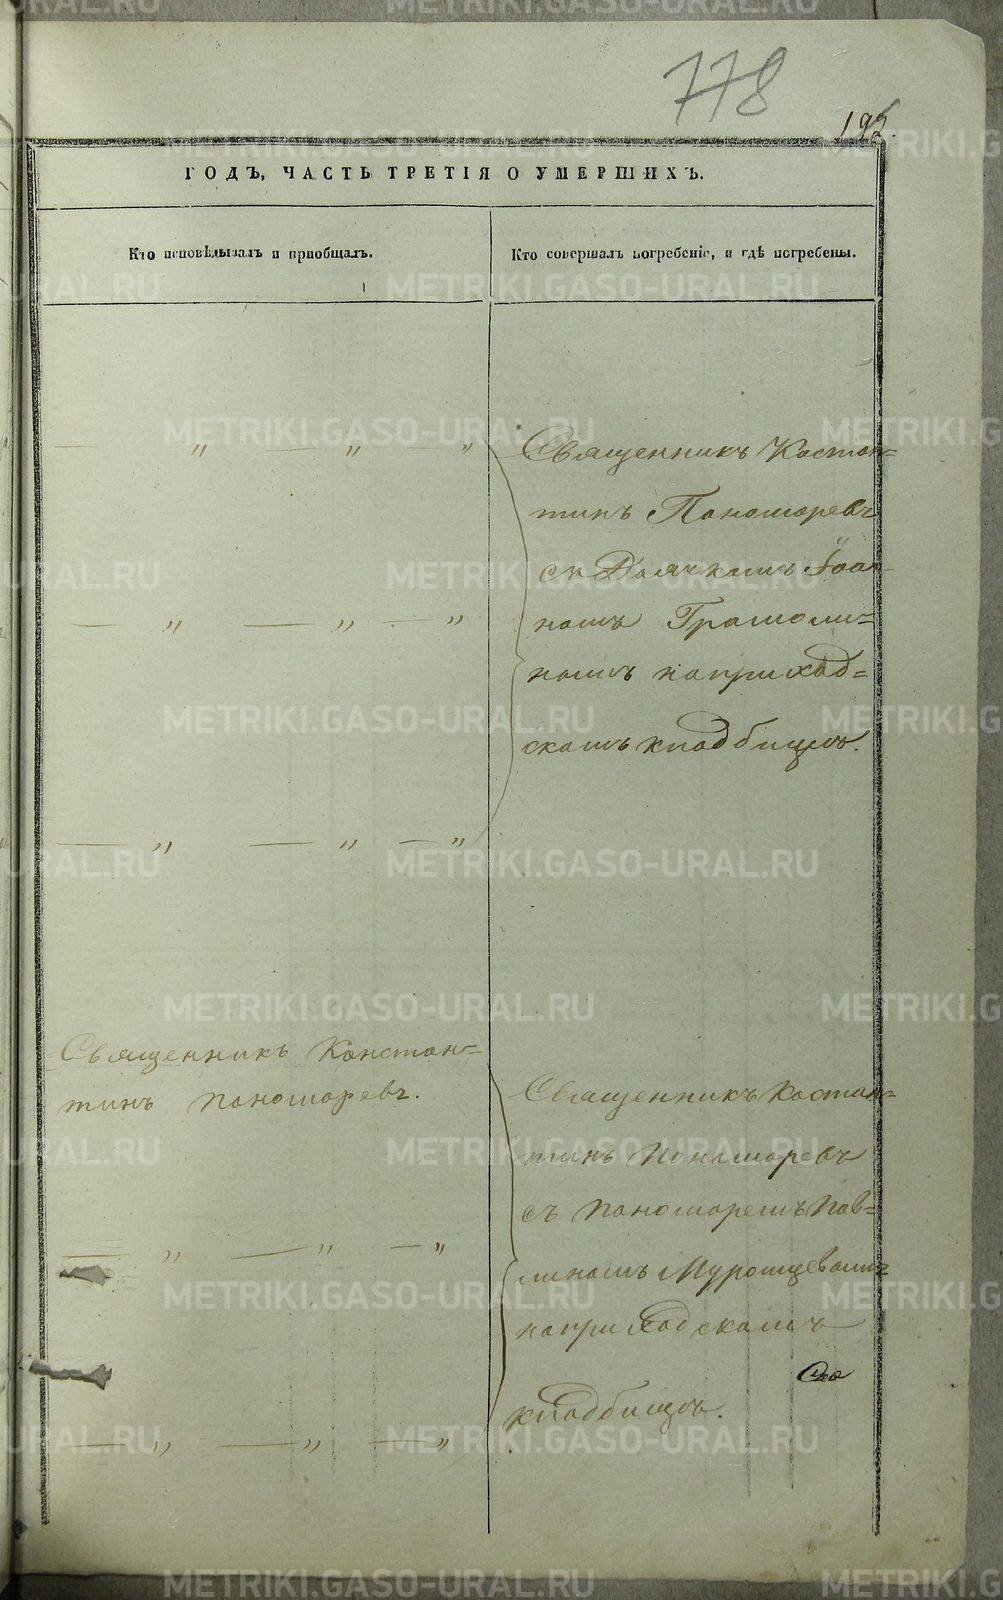 778
195.
ГОДЪ, ЧАСТЬ ТРЕТІЯ О УМЕРШИХЪ.
Кто исповѣдывалъ и пріобщалъ.
Кто совершалъ погребеніе, и гдѣ погребены.
— " — " — "
Священникъ Костан=
тинъ Паномаревъ
съ Дьячкомъ Іоан-
номъ
номъ наприход=
скомъ кладбищѣ.
— " — " — "
— " — " — "
Священникъ Констан=
тинъ Паномаревъ.
Священникъ Костан=
тинъ Пономаревъ
съ Паномаремъ Пав=
линомъ
наприходскомъ
кладбищѣ.
— " — " — "
— " — " — "
METRIKI.GASO-URAL.RU